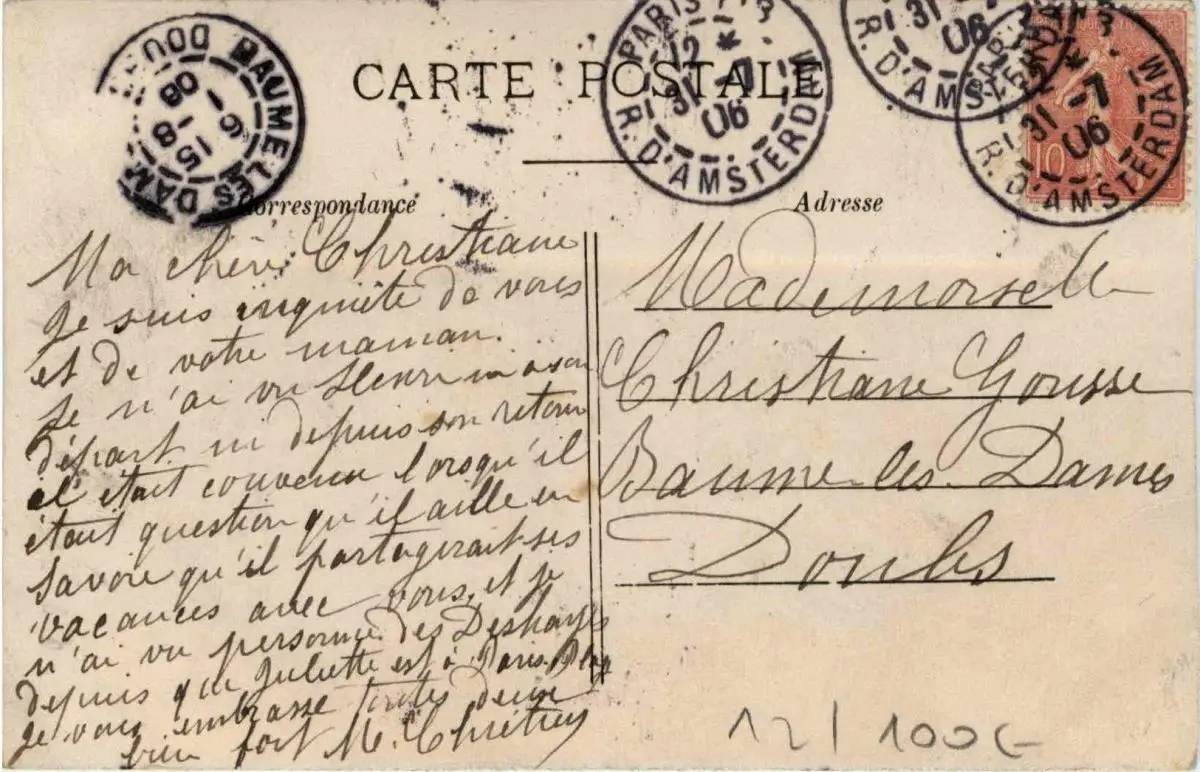 CARTE POSTALE
Correspondance
Adresse
BAUME-LES-DAMES DOUBS
15 1-8 06
PARIS
12 * 31 -7 06
R. D'AMSTERDAM
PARIS
31 06
R. D'AMSTERDAM
PARIS
12 * 31 -7 06
R. D'AMSTERDAM
10
Ma chère Christiane
Je suis inquiète de vous
et de votre maman.
Je n'ai vu Henri ni à son
départ ni depuis son retour
il était convenu lorsqu'il
était question qu'il aille en
Savoie qu'il partagerait ses
vacances avec vous, et je
n'ai vu personne des Deshayes
depuis que Juliette est à Paris Plage
je vous embrasse toutes deux
bien fort M. Chrétien
Mademoiselle
Christiane Gousse
Baume-les-Dames
Doubs
12/100€